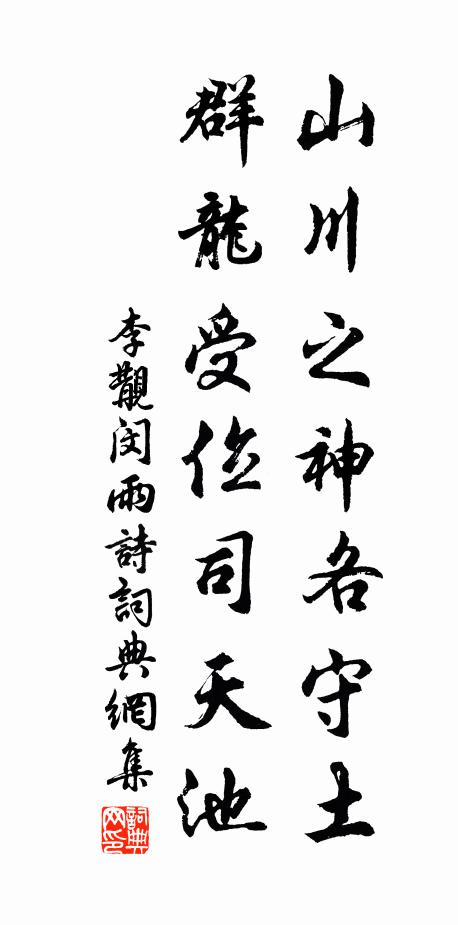 山川之神各守土
群龍受位司天池
李覯閔雨詩詞典網集
詞典
网印